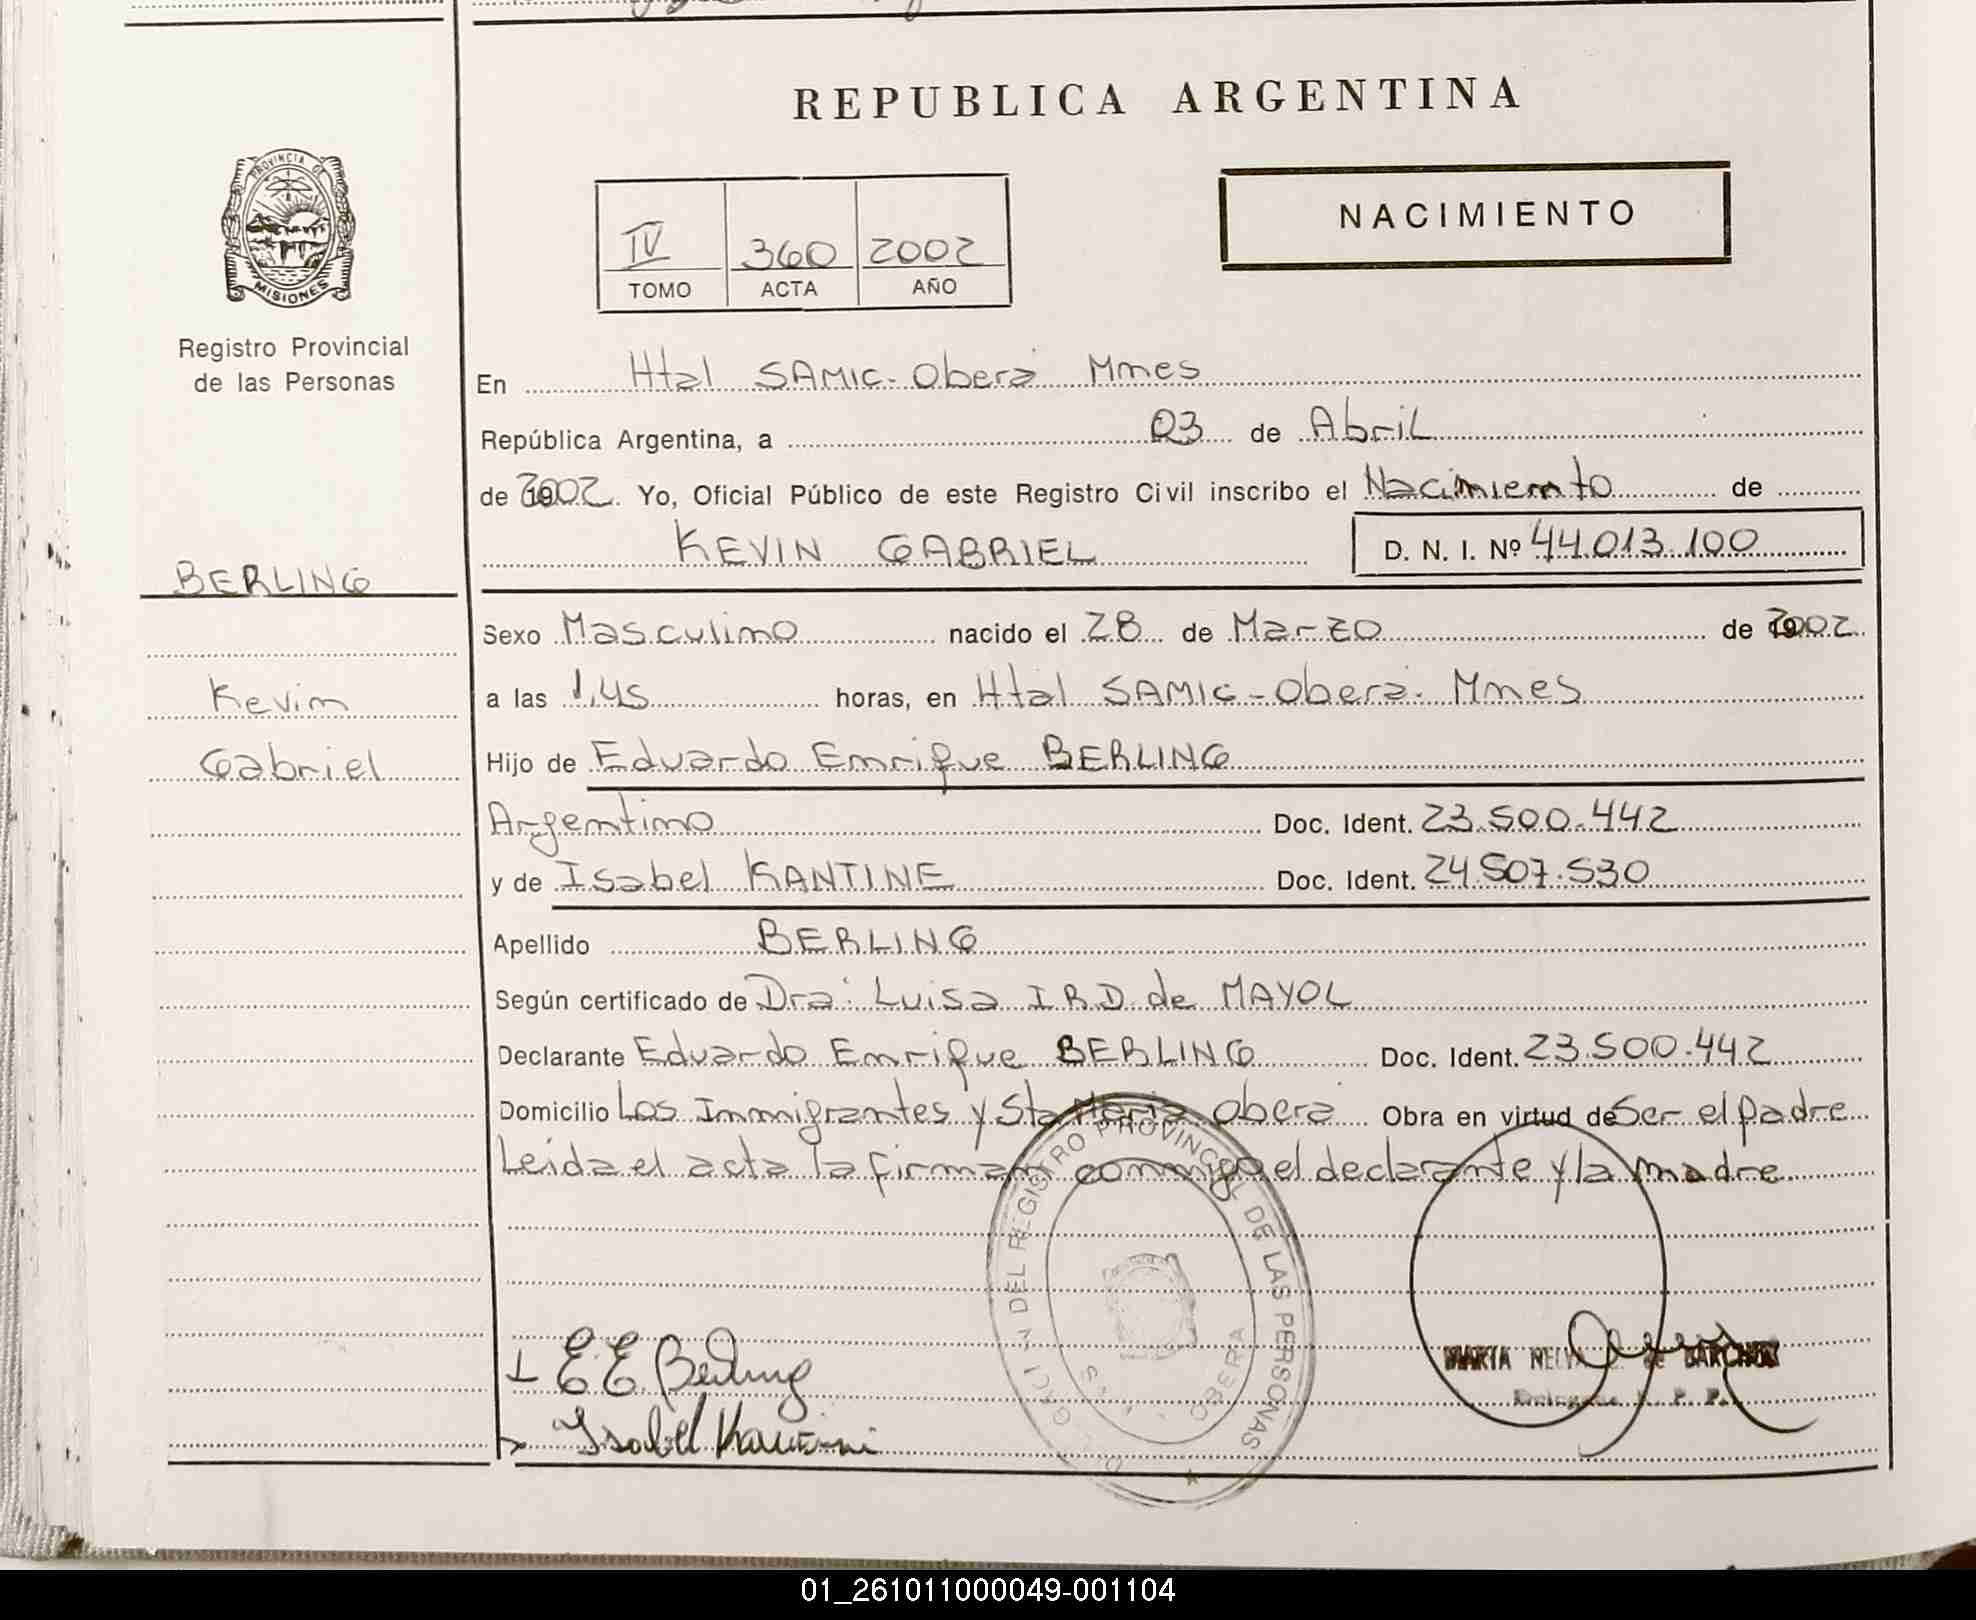 REPUBLICA ARGENTINA
PROVINCIA DE
MISIONES
Registro Provincial
de las Personas
NACIMIENTO
IV 360 2002
TOMO ACTA AÑO
En Htal SAMIC - Oberá Mnes
República Argentina, a 03 de Abril
de 2002. Yo, Oficial Público de este Registro Civil inscribo el Nacimiento de
KEVIN GABRIEL D. N. I. Nº 44.013.100
BERLING
Sexo Masculino nacido el 28 de Marzo de 2002
Kevin
a las 1,45 horas, en Htal SAMIC - Oberá - Mnes
Gabriel
Hijo de Eduardo Enrique BERLING
Argentino Doc. Ident. 23.500.442
y de Isabel KANTINE Doc. Ident. 24.507.530
Apellido BERLING
Según certificado de Dra: Luisa I.R.D. de MAYOL
Declarante Eduardo Enrique BERLING Doc. Ident. 23.500.442
Domicilio Los Inmigrantes y Sta María Oberá Obra en virtud de Ser el padre
Leida el acta la firman conmigo el declarante y la madre
DEL REGISTRO PROVINCIAL DE LAS PERSONAS
OBERA
E. E. Berling
MARIA NELVA de BARCHUK
R. P. P.
Isabel
01_261011000049-001104